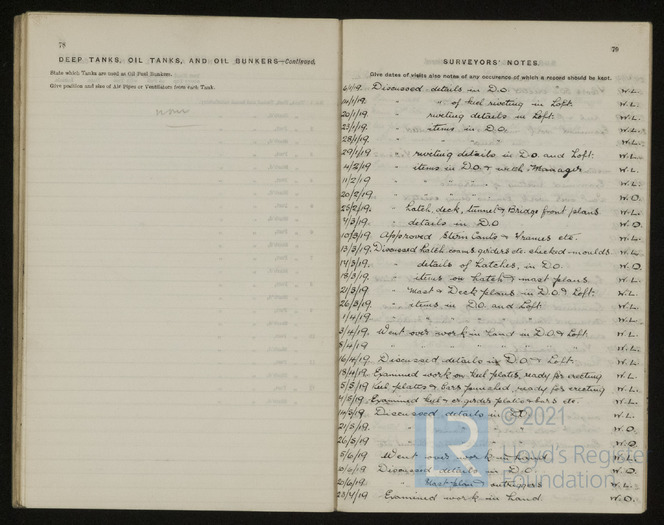 78
DEEP TANKS, OIL TANKS, AND OIL BUNKERS—Continued.
State which Tanks are used as Oil Fuel Bunkers.
Give position and size of Air Pipes or Ventilators from each Tank.
none
79
SURVEYORS' NOTES.
Give dates of visits also notes of any occurence of which a record should be kept.
Discussed details in D.O. W.L.
" " of keel riveting in Loft. W.L.
20/1/19. " riveting details in Loft. W.L.
23/1/19. " items in D.O. W.L.
28/1/19. " " " W.L.
29/1/19 " riveting details in D.O. and Loft. W.L.
4/2/19 " items in D.O. & with Manager W.L.
11/2/19 " " " W.L.
20/2/19. " " " W.O.
25/2/19. " hatch, deck, tunnel & Bridge front plans W.L.
7/3/19. " details in D.O. W.O.
10/3/19 Approved Stern Cants & Frames etc. W.L.
13/3/19. Discussed hatch coams girders etc. checked moulds. W.L.
17/3/19. " details of hatches, in D.O. W.O.
18/3/19. " items on hatch & mast plans. W.L.
21/3/19 " Mast & Deck plans in D.O. & Loft. W.L.
26/3/19. " items in D.O. and Loft. W.L.
1/4/19. " " " W.L.
3/4/19. Went over work in hand in D.O. & Loft. W.L.
8/4/19 " " " W.L.
16/4/19. Discussed details in D.O. & Loft. W.L.
18/4/19. Examined work on keel plates, ready for erecting W.L.
5/5/19 Keel plates & bars furnished, ready for erecting W.L.
Examined keel & girders plates & bars etc. W.L.
Discussed details in D.O. W.L.
21/5/19. " " " W.O.
26/5/19. " " " W.O.
5/6/19. Went over work in hand. W.L.
Discussed details in D.O. W.O.
20/6/19. " Mast plan outriggers W.L.
Examined work in hand. W.O.
© 2021
LR
Lloyd's Register
Foundation